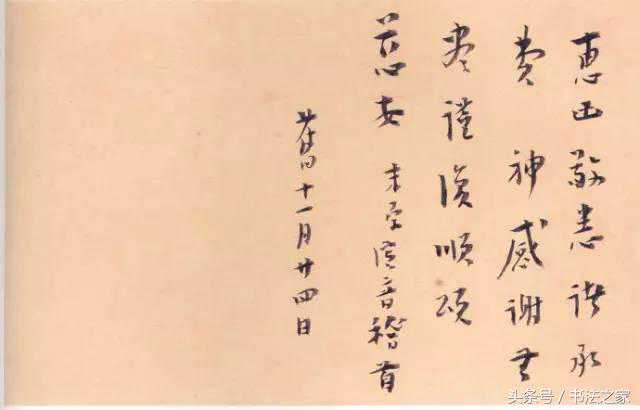 惠函敬悉诸承
费神感谢无
尽谨复顺颂
慈安 末学演音稽首
旧十一月廿四日
头条号/书法之家